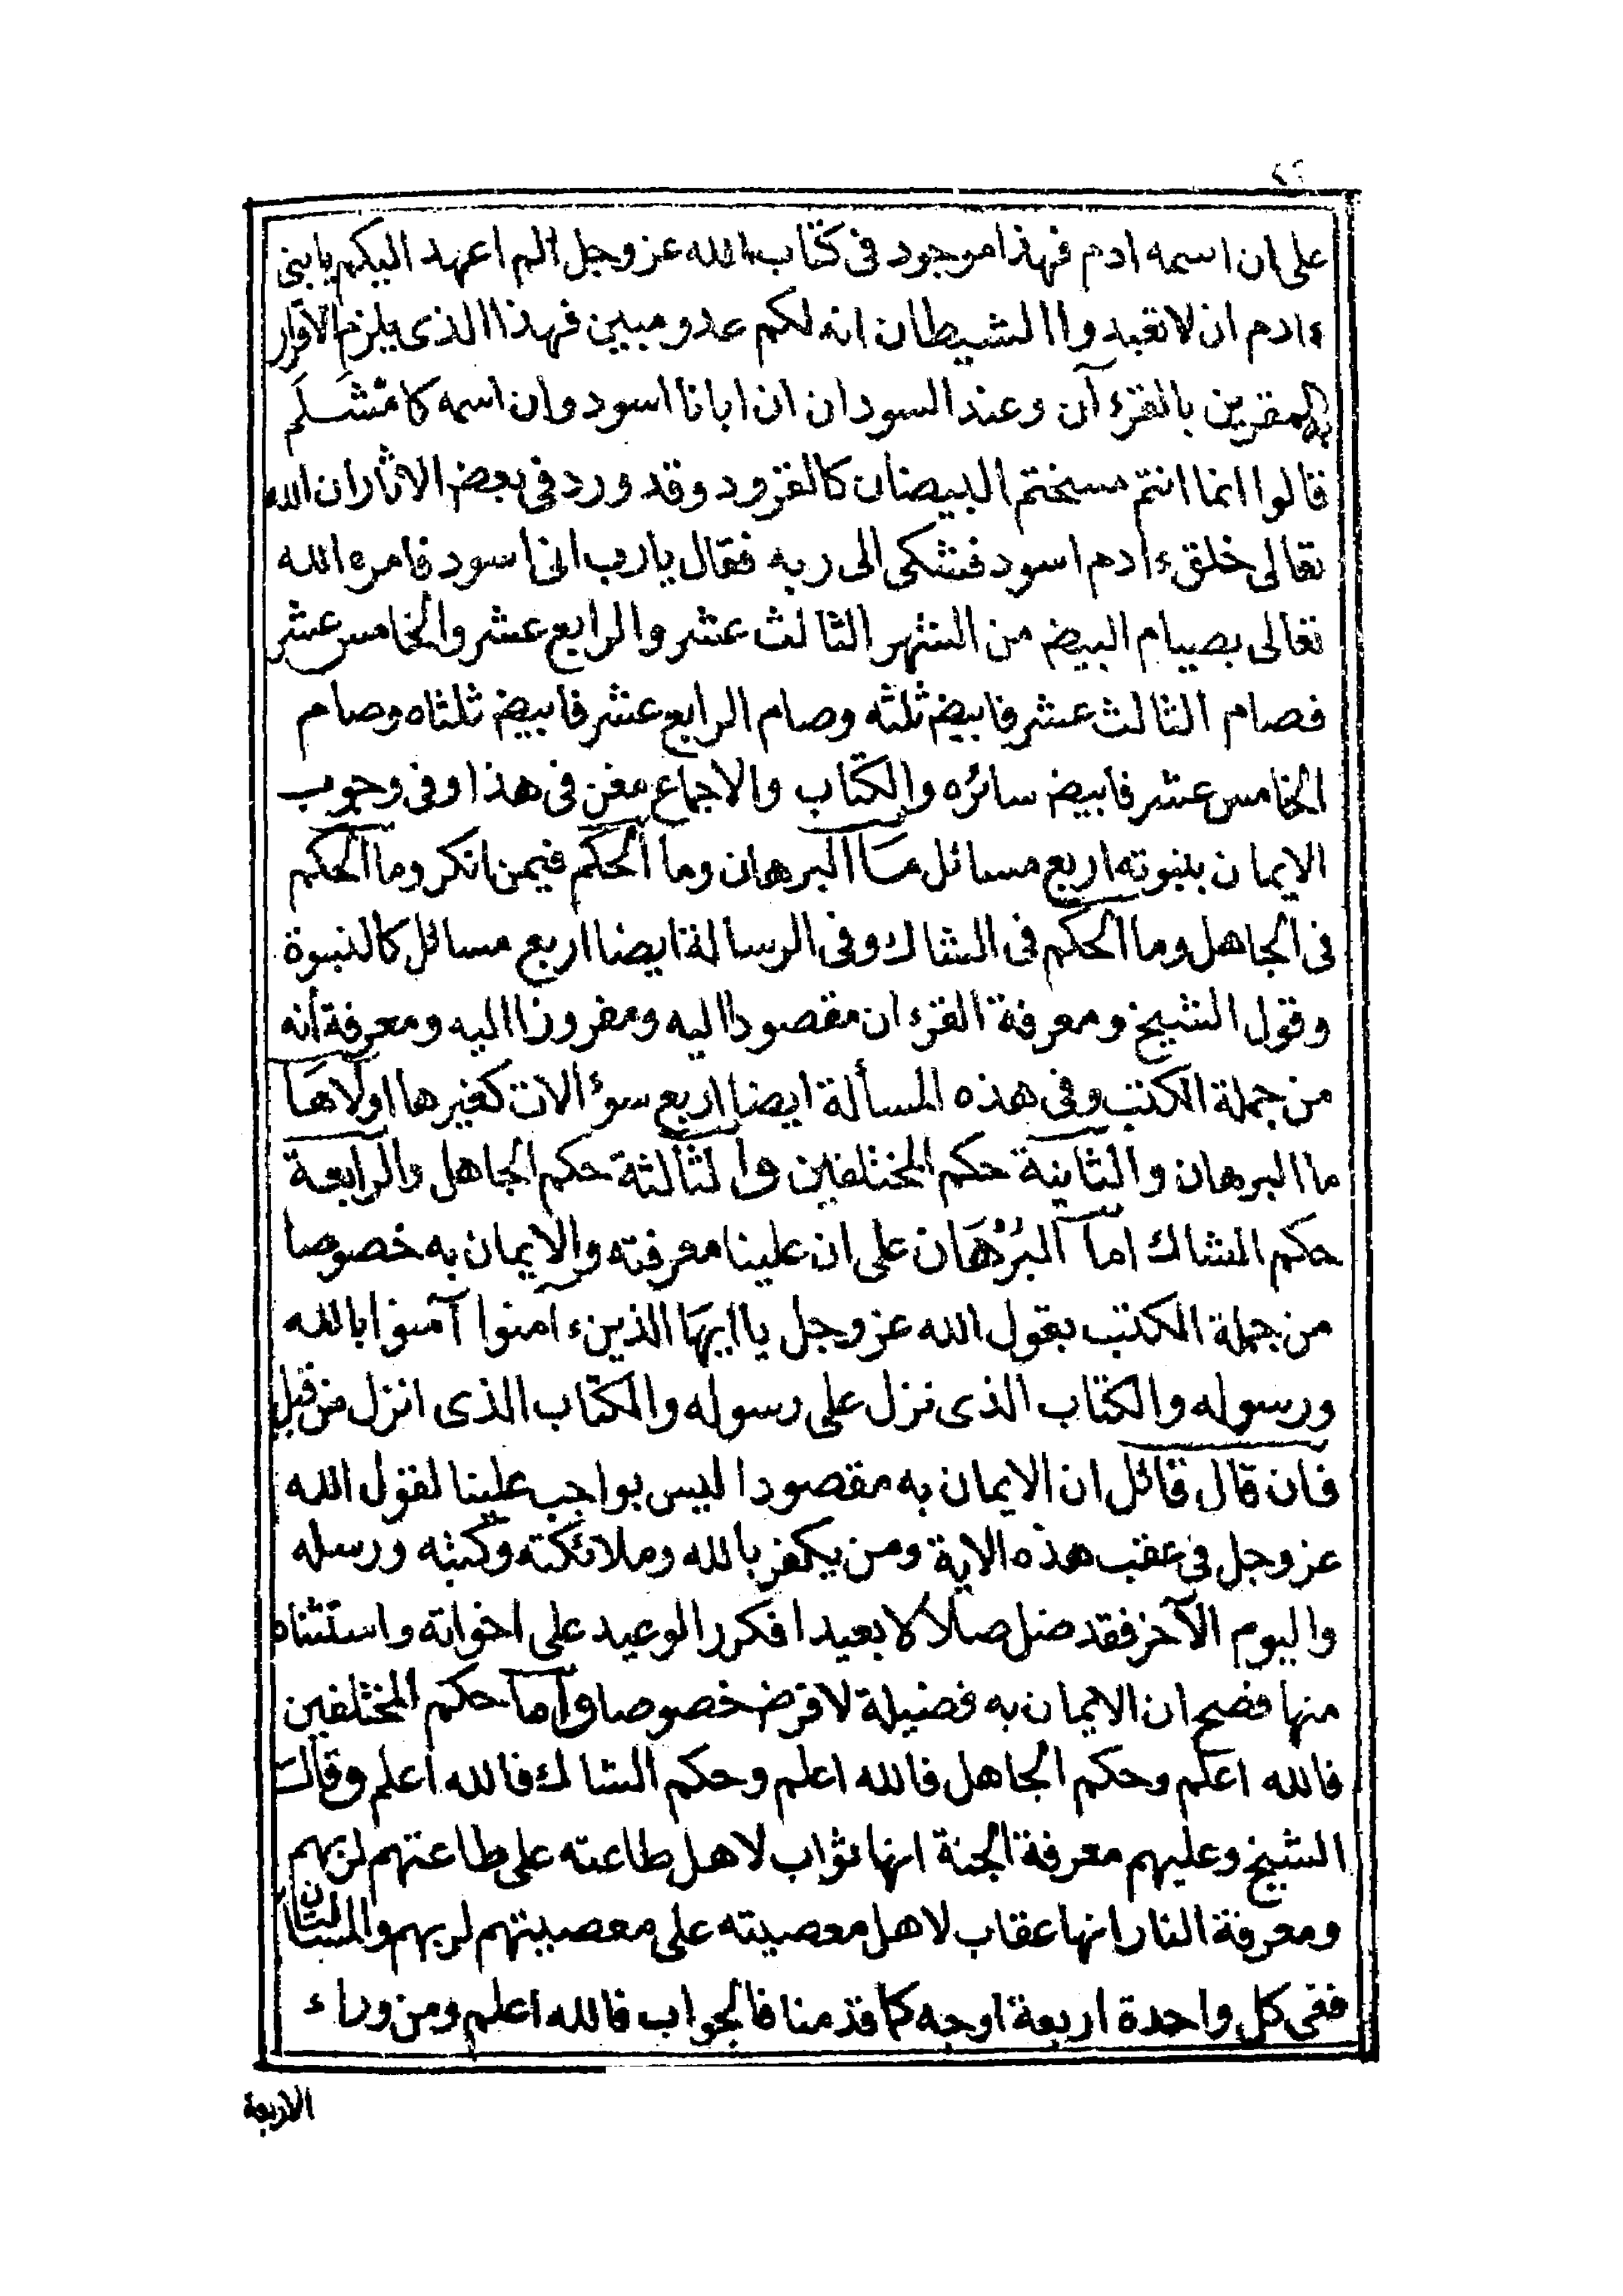 على ان اسمه ادم فهذا موجود فى كتاب الله عز وجل الم اعهد اليكم يا بنى
ءادم ان لا تعبدوا الشيطان انه لكم عدو مبين فهذا الذى يلزم الاقرار
به المقرين بالقرءآن وعند السودان ان ابانا اسود وان اسمه كامشلم
قالوا انما انتم مسختم البيضان كالقرود وقد ورد فى بعض الاثار ان الله
تعالى خلق ءادم اسود فشكى الى ربه فقال يا رب انى اسود فامره الله
تعالى بصيام البيض من الشهر الثالث عشر والرابع عشر والخامس عشر
فصام الثالث عشر فابيض ثلثه وصام الرابع عشر فابيض ثلثاه وصام
الخامس عشر فابيض سائره والكتاب والاجماع مغن فى هذا وفى وجوب
الايمان بنبوته اربع مسائل ما البرهان وما الحكم فيمن انكر وما الحكم
فى الجاهل وما الحكم فى الشاك وفى الرسالة ايضا اربع مسائل كالنبوة
وقول الشيخ ومعرفة القرءان مقصودا اليه ومفروزا اليه ومعرفة أنه
من جملة الكتب وفى هذه المسألة ايضا اربع سؤالات كغيرها اولاها
ما البرهان والثانية حكم المختلفين والثالثة حكم الجاهل والرابعة
حكم الشاك اما البرهان على ان علينا معرفته والايمان به خصوصا
من جملة الكتب بقول الله عز وجل يا ايها الذين ءامنوا آمنوا بالله
ورسوله والكتاب الذى نزل على رسوله والكتاب الذى انزل من قبل
فان قال قائل ان الايمان به مقصودا ليس بواجب علينا لقول الله
عز وجل فى عقب هذه الاية ومن يكفر بالله وملائكته وكتبه ورسله
واليوم الآخر فقد ضل ضلالا بعيدا فكرر الوعيد على اخواته واستثناه
منها فصح ان الايمان به فضيلة لا فرض خصوصا واما حكم المختلفين
فالله اعلم وحكم الجاهل فالله اعلم وحكم الشاك فالله اعلم وقال
الشيخ وعليهم معرفة الجنة انها ثواب لاهل طاعته على طاعتهم لربهم
ومعرفة النار انها عقاب لاهل معصيته على معصيتهم لربهم
ففى كل واحدة اربعة اوجه كما قدمنا فالجواب فالله اعلم ومن وراء
الاربعة